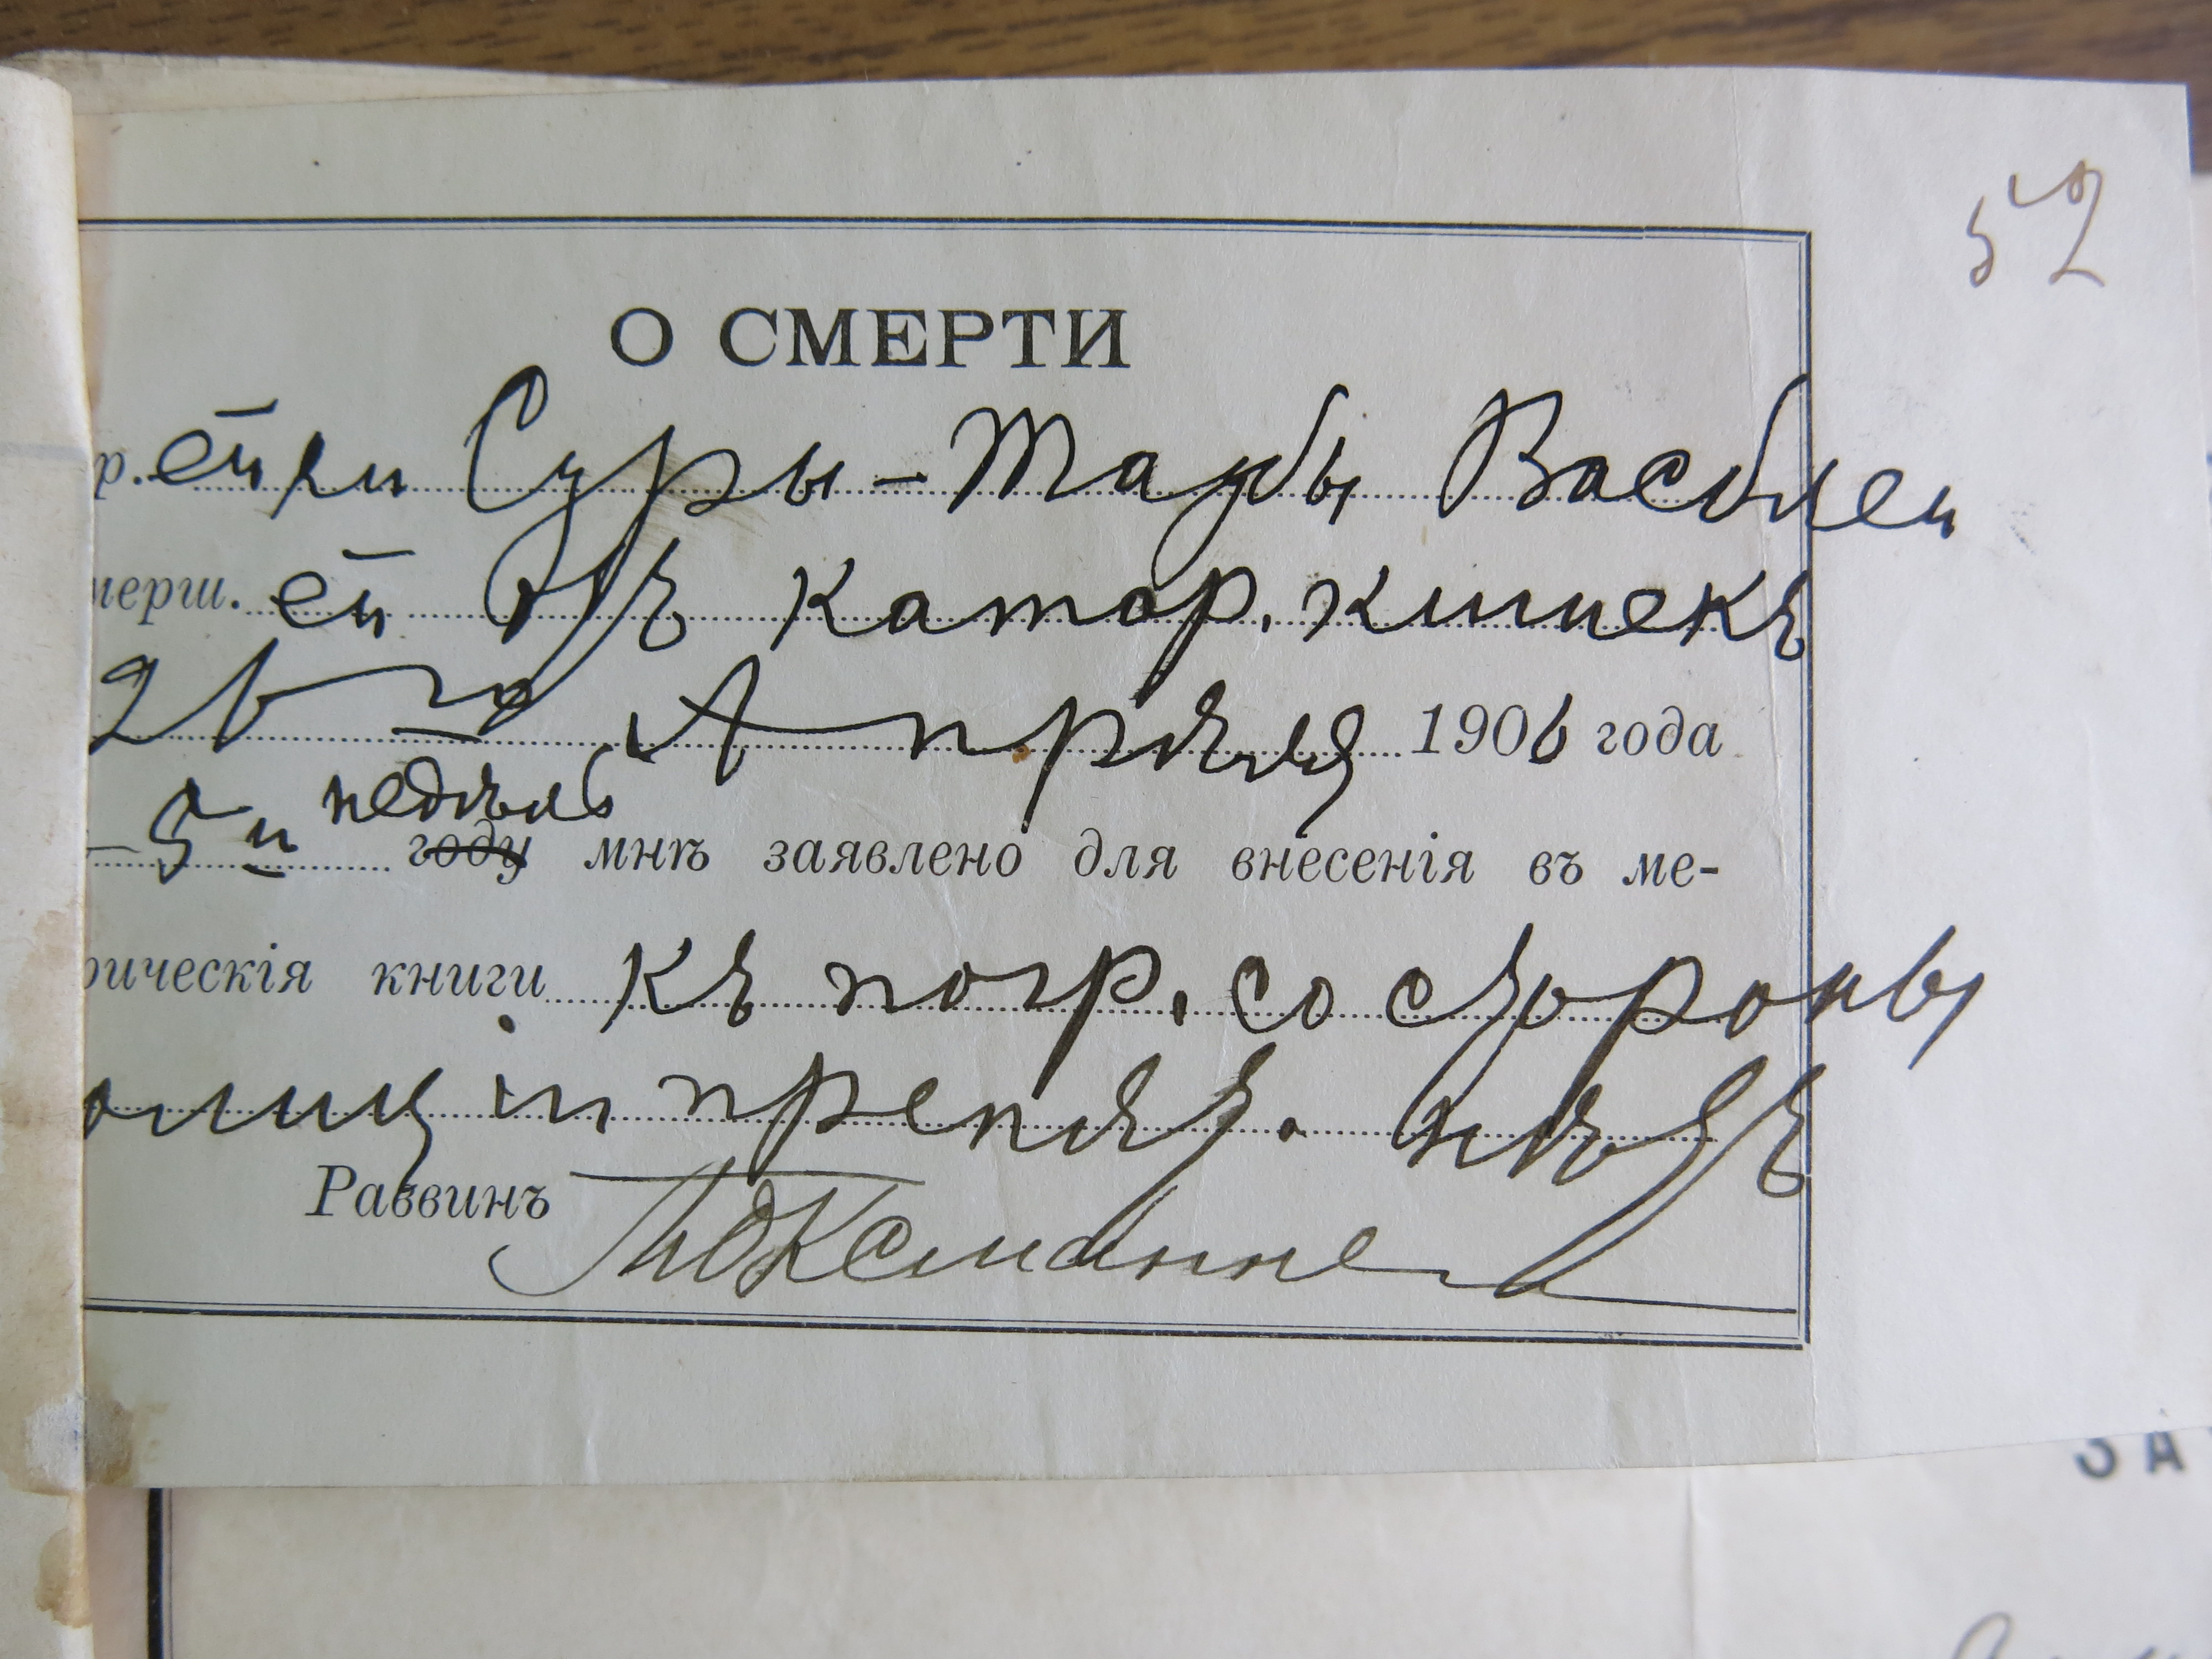 52
О СМЕРТИ
р. Суры-Таубы
мерш. ей отъ катар. кишекъ
26 го Апрѣля 1906 года
5 й недѣль году мнѣ заявлено для внесенія въ ме-
рическія книги къ погр. со стороны
полиціи препят. нѣтъ
Раввинъ
ЗА